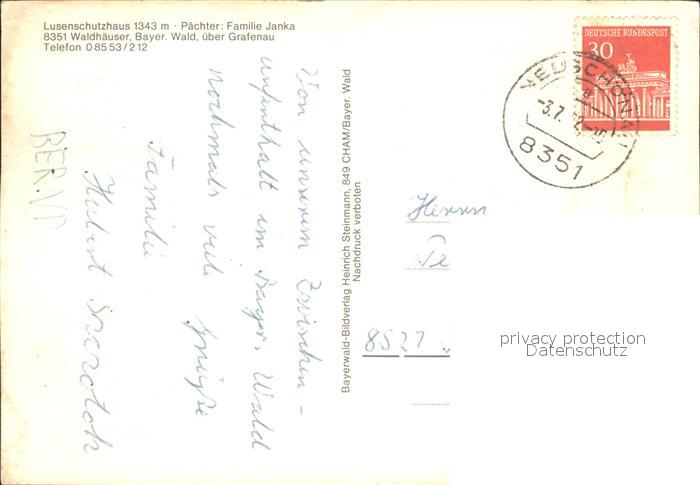 Lusenschutzhaus 1343 m · Pächter: Familie Janka
8351 Waldhäuser, Bayer. Wald, über Grafenau
Telefon 0 85 53 / 2 12
Von unserem Zwischen-
aufenthalt im Bayer. Wald
nochmals viele Grüße
Familie
Hubert
BERND
Bayerwald-Bildverlag Heinrich Steinmann, 849 CHAM/Bayer. Wald
Nachdruck verboten
DEUTSCHE BUNDESPOST
30
NEUSCHÖNAU
a
-3.7.72-15
8351
Herrn
privacy protection
Datenschutz